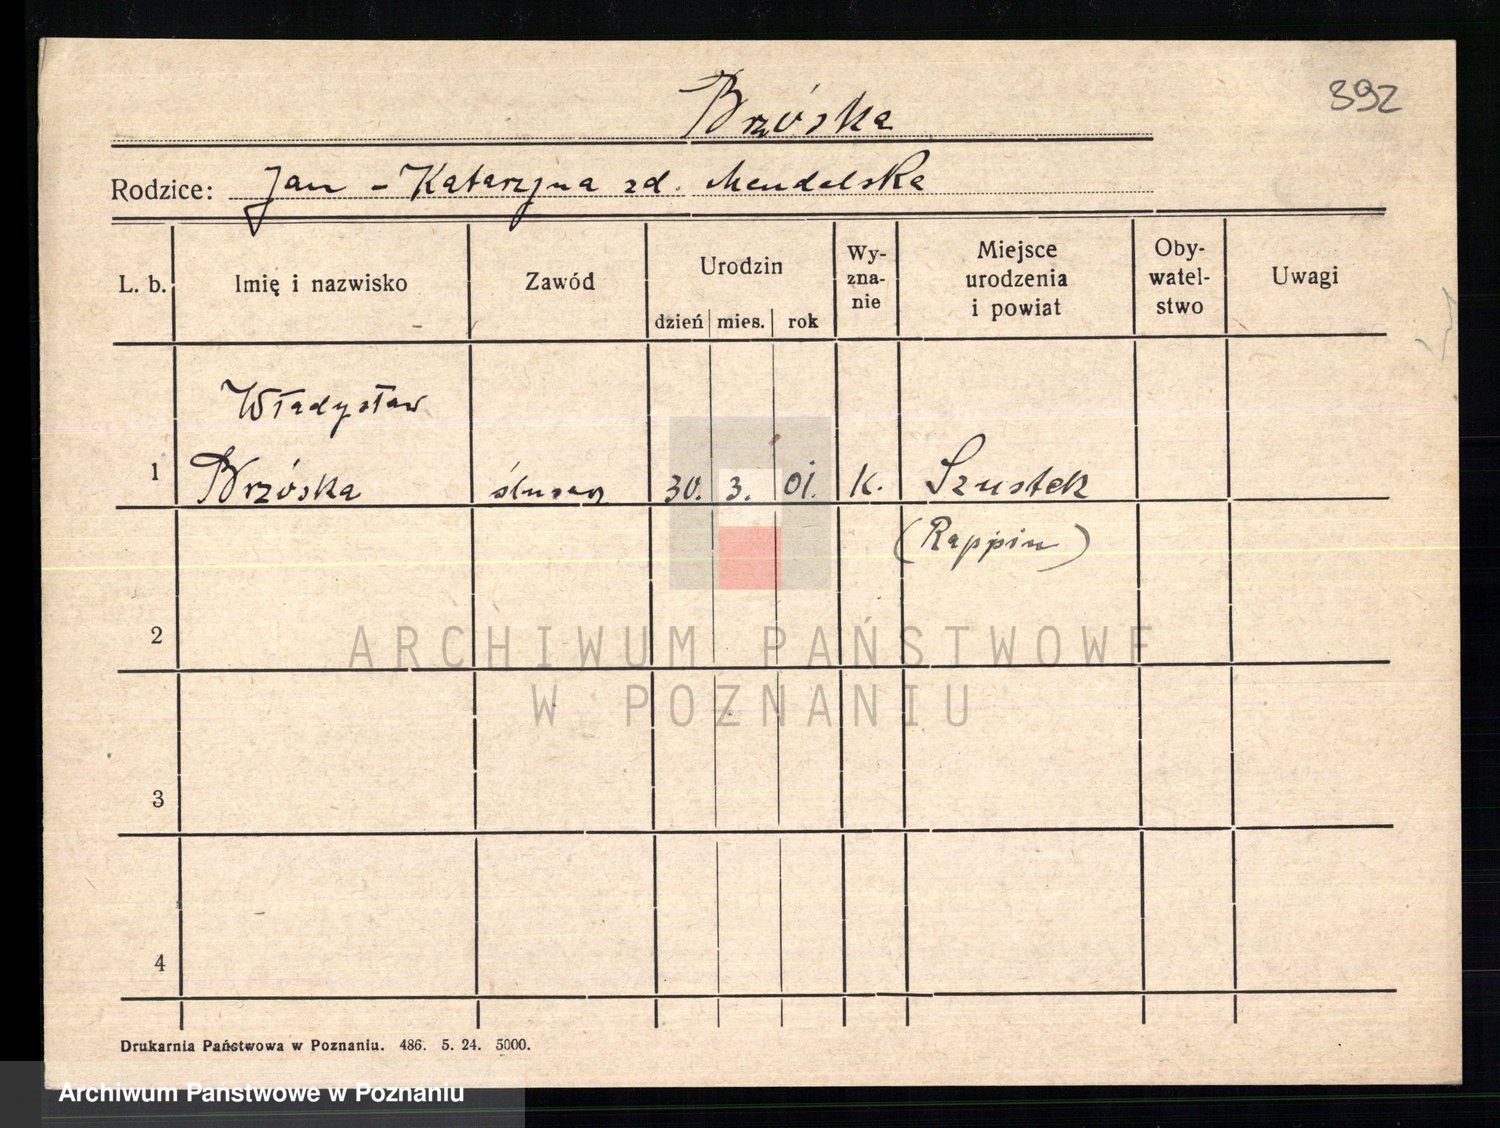 Brzóska
392
Rodzice: Jan - Katarzyna zd. Mendelska
L. b. Imię i nazwisko Zawód Urodzin dzień mies. rok Wy-zna-nie Miejsce urodzenia i powiat Oby-watel-stwo Uwagi
Władysław
1 Brzóska ślusarz 30. 3. 01. K. Szustek
(Rappin)
2
ARCHIWUM PAŃSTWOWE
W POZNANIU
3
4
Drukarnia Państwowa w Poznaniu. 486. 5. 24. 5000.
Archiwum Państwowe w Poznaniu